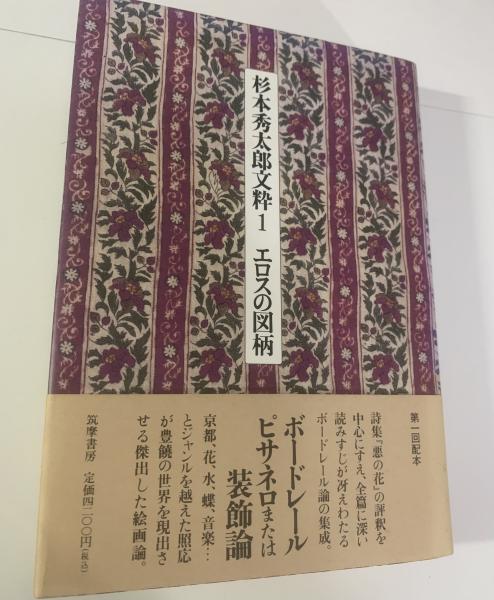 杉本秀太郎文粋1 エロスの図柄
第一回配本
詩集『悪の花』の評釈を
中心にすえ、全篇に深い
読みすじが冴えわたる
ボードレール論の集成。
ボードレール
ピサネロまたは
装飾論
京都、花、水、蝶、音楽…
とジャンルを越えた照応
が豊饒の世界を現出さ
せる傑出した絵画論。
筑摩書房 定価四二〇〇円(税込)